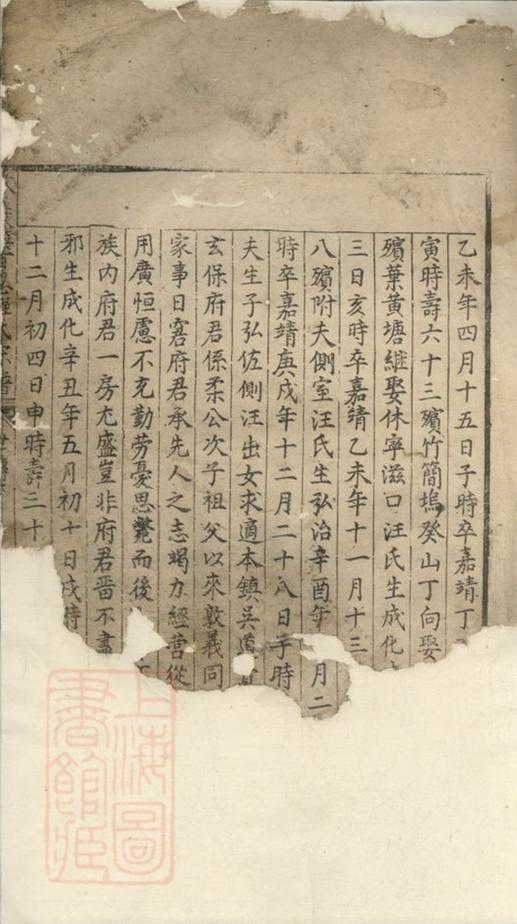 乙未年四月十五日子時卒嘉靖丁
寅時壽六十三殯竹簡塢癸山丁向娶
殯葉黃塘繼娶休寧滋口汪氏生成化
三日亥時卒嘉靖乙未年十一月十三
八殯附夫側室汪氏生弘治辛酉年月二
時卒嘉靖庚戌年十二月二十八日子時
夫生子弘佐側汪出女求適本鎮吳道
玄保府君係柔公次子祖父以來敦義同
家事日窘府君承先人之志竭力經營從
用廣恒慮不充勤勞憂思斃而後
族內府君一房尤盛豈非府君嗇不盡
邪生成化辛丑年五月初十日戌時
十二月初四日申時壽三十
上海圖書館藏